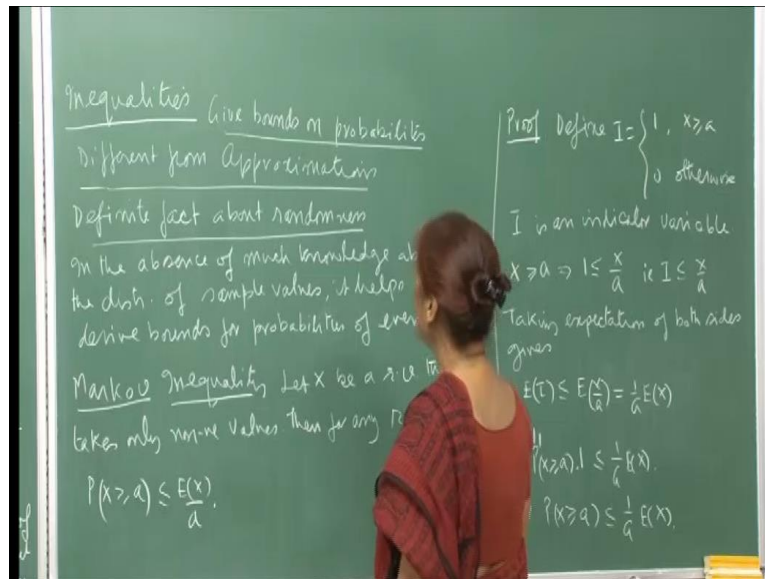 Inequalities Give bounds on probabilities
Different from Approximations
Definite fact about randomness
In the absence of much knowledge
the distn. of sample values, it helps
derive bounds for probabilities of
Markov Inequality Let X be a r.v
takes only non-ve values. Then for any
P(X ≥ a) ≤ E(X)/a.
Proof Define I = { 1, X ≥ a
0 otherwise
I is an indicator variable
X ≥ a ⇒ 1 ≤ X/a ie I ≤ X/a
Taking expectation of both sides
gives
E(I) ≤ E(X/a) = 1/a E(X)
P(X ≥ a).1 ≤ 1/a E(X).
P(X ≥ a) ≤ 1/a E(X).